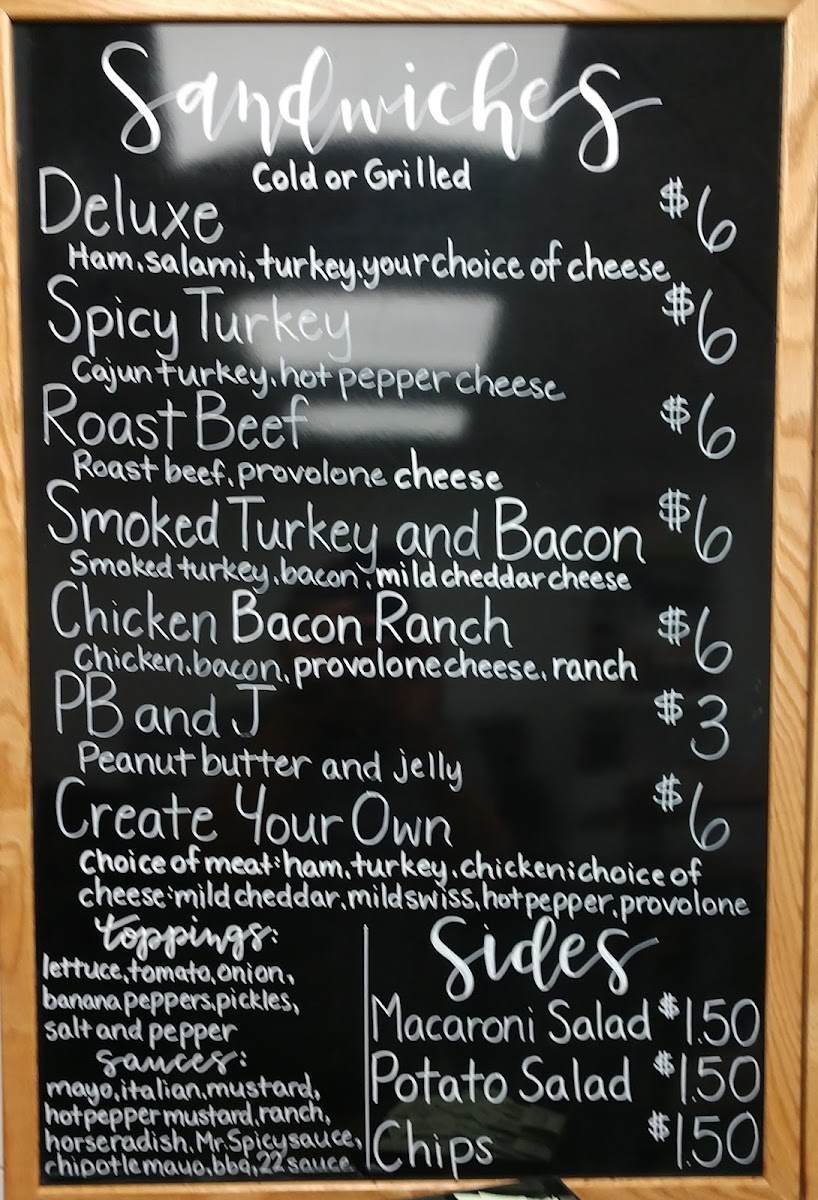 Sandwiches
Cold or Grilled
Deluxe $6
Ham, salami, turkey, your choice of cheese
Spicy Turkey $6
Cajun turkey, hot pepper cheese
Roast Beef $6
Roast beef, provolone cheese
Smoked Turkey and Bacon $6
Smoked turkey, bacon, mild cheddar cheese
Chicken Bacon Ranch $6
Chicken, bacon, provolone cheese, ranch
PB and J $3
Peanut butter and jelly
Create Your Own $6
choice of meat: ham, turkey, chicken; choice of
cheese: mild cheddar, mild swiss, hot pepper, provolone
toppings:
lettuce, tomato, onion,
banana peppers, pickles,
salt and pepper
sauces:
mayo, italian, mustard,
hot pepper mustard, ranch,
horseradish, Mr. Spicy sauce,
chipotle mayo, bbq, 22 sauce
Sides
Macaroni Salad $1.50
Potato Salad $1.50
Chips $1.50